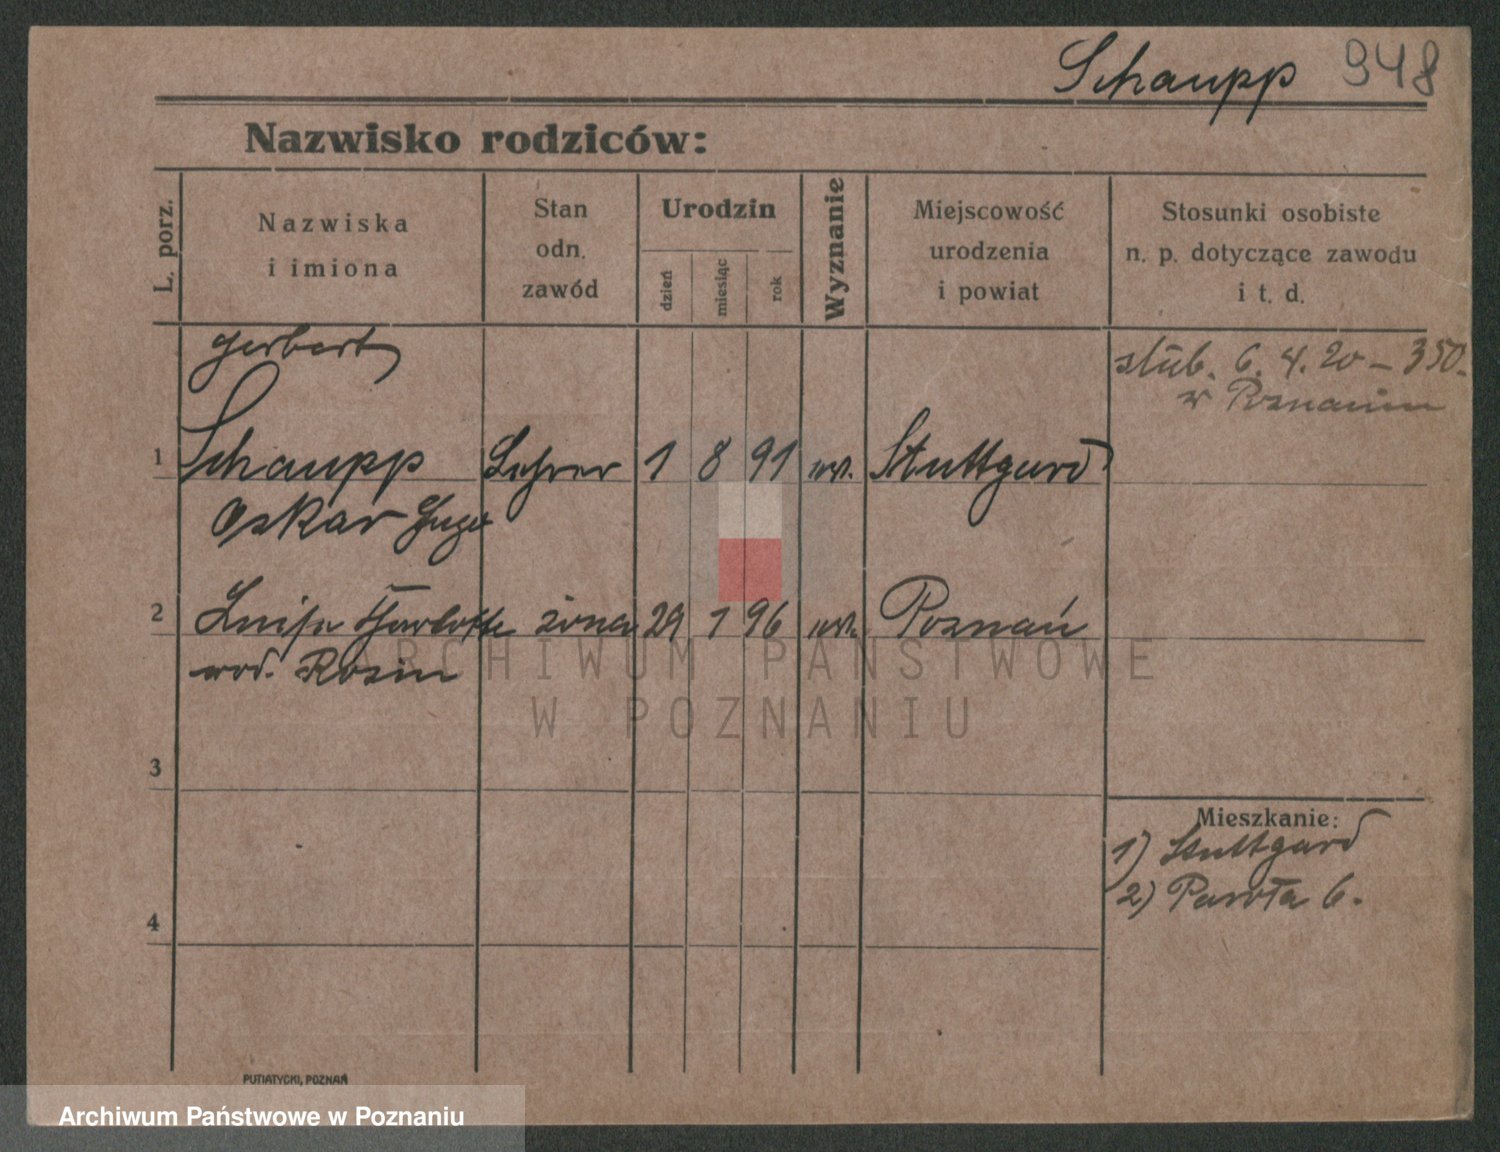 Schaupp 948
Nazwisko rodziców:
L. porz.
Nazwiska
i imiona
Stan
odn.
zawód
Urodzin
dzień
miesiąc
rok
Wyznanie
Miejscowość
urodzenia
i powiat
Stosunki osobiste
n. p. dotyczące zawodu
i t. d.
Gerbert
ślub. 6. 4. 20 – 350.
w Poznaniu
1 Schaupp Lehrer 1 8 91 ew. Stuttgard
Oskar Hugo
2 Luise Charlotte żona 29 1 96 ew. Poznań
urod. Rosin
ARCHIWUM PAŃSTWOWE
W POZNANIU
3
Mieszkanie:
1) Stuttgard
2) Pawła 6.
4
PUTIATYCKI, POZNAŃ
Archiwum Państwowe w Poznaniu